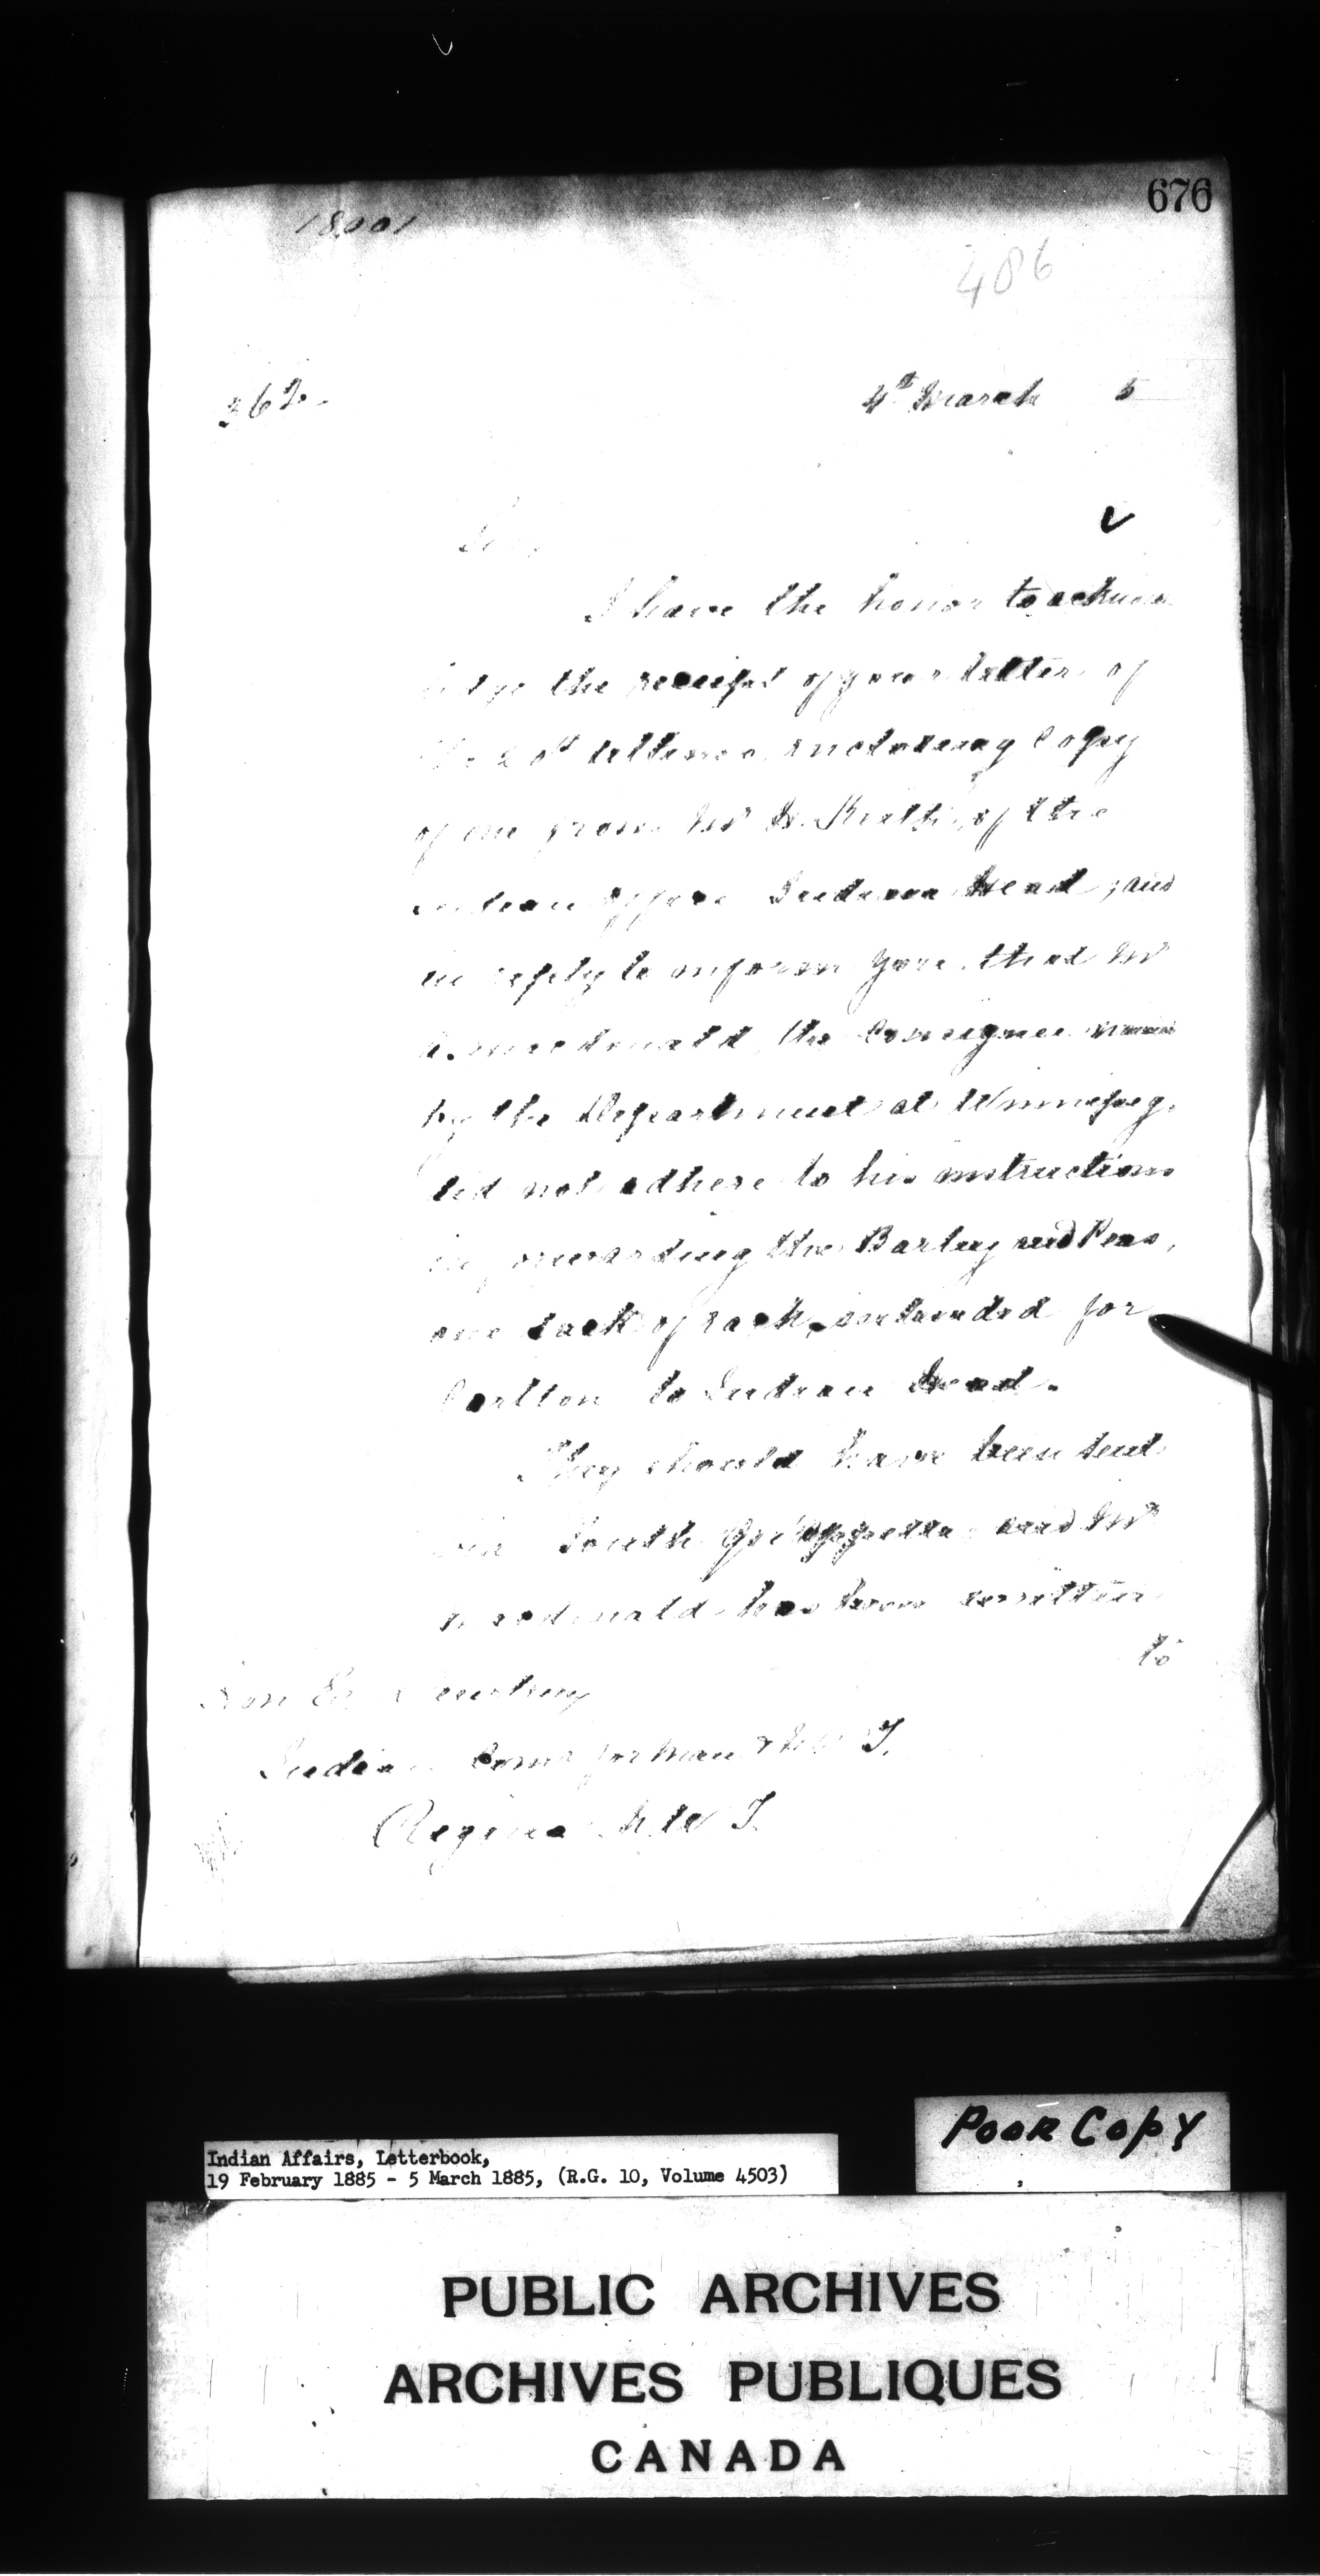 676
18001
486
362
4th March 5
Sir,
I have the honor to acknow
ledge the receipt of your letter of
the ultimo, inclosing Copy
of one from Mr of the
Indian Office Indian Head; and
in reply to inform you that Mr
A. Macdonald, the Consignee named
by the Department at Winnipeg,
did not adhere to his instructions
in forwarding the Barley and Peas,
one sack of each, intended for
Carlton to Indian Head.
They should have been sent
via South Qu'Appelle and Mr
Macdonald has been written
to
Hon E. Dewdney
Indian Comr for Man & N.W.T.
Regina N.W.T.
Poor Copy
Indian Affairs, Letterbook,
19 February 1885 - 5 March 1885, (R.G. 10, Volume 4503)
PUBLIC ARCHIVES
ARCHIVES PUBLIQUES
CANADA